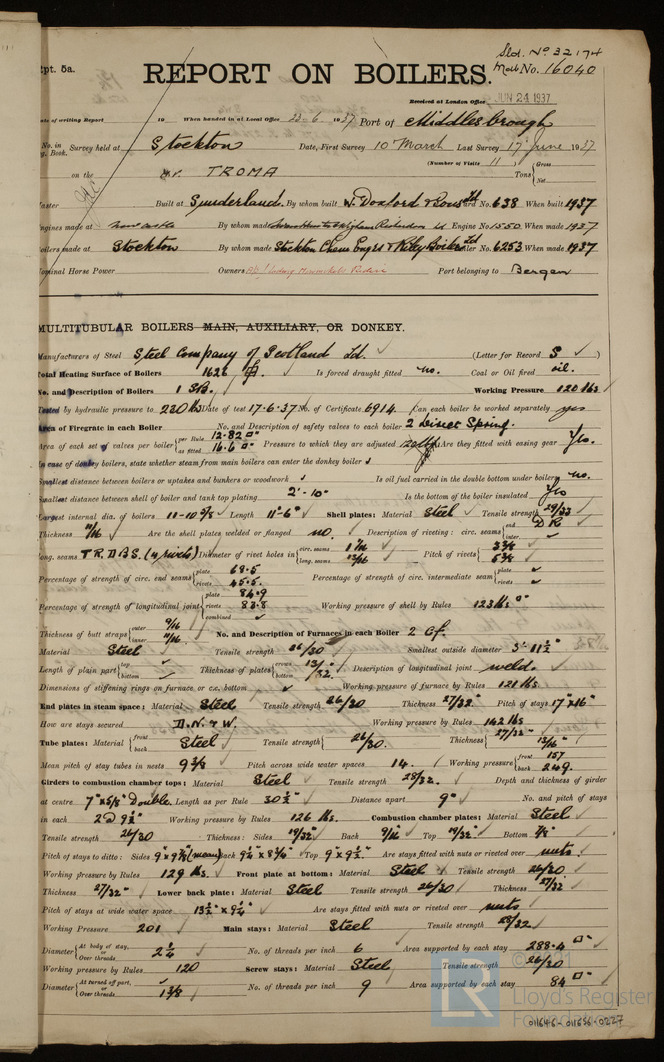 Sld. No 32174
Rpt. 5a.
Mob No. 16040
REPORT ON BOILERS.
Received at London Office JUN 24 1937
Date of writing Report 19 When handed in at Local Office 23-6 1937 Port of Middlesbrough
No. in Survey held at Stockton Date, First Survey 10 March Last Survey 17 June 1937
Reg. Book. (Number of Visits 11)
on the M.V. TROMA Tons Gross Net
Master Built at Sunderland. By whom built W. Doxford & Sons Ld Yard No. 638 When built 1937
Engines made at Newcastle By whom made Engine No. 1550 When made 1937
Boilers made at Stockton By whom made Stockton Chem Engrs & Riley Boilers Ld Boiler No. 6253 When made 1937
Nominal Horse Power Owners Port belonging to Bergen
MULTITUBULAR BOILERS MAIN, AUXILIARY, OR DONKEY.
Manufacturers of Steel Steel Company of Scotland Ld. (Letter for Record S)
Total Heating Surface of Boilers 1626 Is forced draught fitted no. Coal or Oil fired oil.
No. and Description of Boilers 1 SB. Working Pressure 120 lbs
Tested by hydraulic pressure to 230 lbs Date of test 17-6-37 No. of Certificate 6914 Can each boiler be worked separately yes
Area of Firegrate in each Boiler No. and Description of safety valves to each boiler 2 Direct Spring.
Area of each set of valves per boiler per Rule 12.82 as fitted 16.6 Pressure to which they are adjusted Are they fitted with easing gear Yes.
In case of donkey boilers, state whether steam from main boilers can enter the donkey boiler
Smallest distance between boilers or uptakes and bunkers or woodwork Is oil fuel carried in the double bottom under boilers no.
Smallest distance between shell of boiler and tank top plating 2'-10" Is the bottom of the boiler insulated Yes
Largest internal dia. of boilers 11-10 5/8 Length 11'-6" Shell plates: Material Steel Tensile strength 29/33
Thickness 11/16 Are the shell plates welded or flanged no. Description of riveting: circ. seams end D R inter.
long. seams T R D B S. (4 rivets) Diameter of rivet holes in circ. seams 1 1/16 long. seams 13/16 Pitch of rivets 3 3/8 5 3/8
Percentage of strength of circ. end seams plate 68.5 rivets 45.5. Percentage of strength of circ. intermediate seam plate rivets
Percentage of strength of longitudinal joint plate 84.9 rivets 83.8 combined Working pressure of shell by Rules 123 lbs
Thickness of butt straps outer 9/16 inner 11/16 No. and Description of Furnaces in each Boiler 2 Cf.
Material Steel Tensile strength 26/30 Smallest outside diameter 3'-11 1/2"
Length of plain part top bottom Thickness of plates crown bottom 13/32. Description of longitudinal joint weld.
Dimensions of stiffening rings on furnace or c.c. bottom Working pressure of furnace by Rules 121 lbs.
End plates in steam space: Material Steel Tensile strength 26/30 Thickness 27/32" Pitch of stays 17" x 16"
How are stays secured D.N. & W. Working pressure by Rules 142 lbs
Tube plates: Material front back Steel Tensile strength 26/30. Thickness 27/32" 13/16"
Mean pitch of stay tubes in nests 9 3/8 Pitch across wide water spaces 14. Working pressure front 157 back 249.
Girders to combustion chamber tops: Material Steel Tensile strength 28/32. Depth and thickness of girder
at centre 7" x 5/8" Double. Length as per Rule 30 1/2" Distance apart 9" No. and pitch of stays
in each 2 @ 9 1/2" Working pressure by Rules 126 lbs. Combustion chamber plates: Material Steel
Tensile strength 26/30 Thickness: Sides 19/32" Back 9/16" Top 19/32" Bottom 3/4"
Pitch of stays to ditto: Sides 9" x 9 7/8" (mean) Back 9 1/4" x 8 3/4" Top 9" x 9 1/2" Are stays fitted with nuts or riveted over nuts.
Working pressure by Rules 129 lbs. Front plate at bottom: Material Steel Tensile strength 26/30
Thickness 27/32" Lower back plate: Material Steel Tensile strength 26/30 Thickness 27/32"
Pitch of stays at wide water space 13 1/2" x 9 1/4" Are stays fitted with nuts or riveted over nuts
Working Pressure 201 Main stays: Material Steel Tensile strength 28/32
Diameter At body of stay, or Over threads 2 1/4 No. of threads per inch 6 Area supported by each stay 288.4
Working pressure by Rules 120 Screw stays: Material Steel Tensile strength 26/30
Diameter At turned off part, or Over threads 1 3/8 No. of threads per inch 9 Area supported by each stay 84
© 2021
LR
Lloyd's Register
Foundation
011646-011656-0227